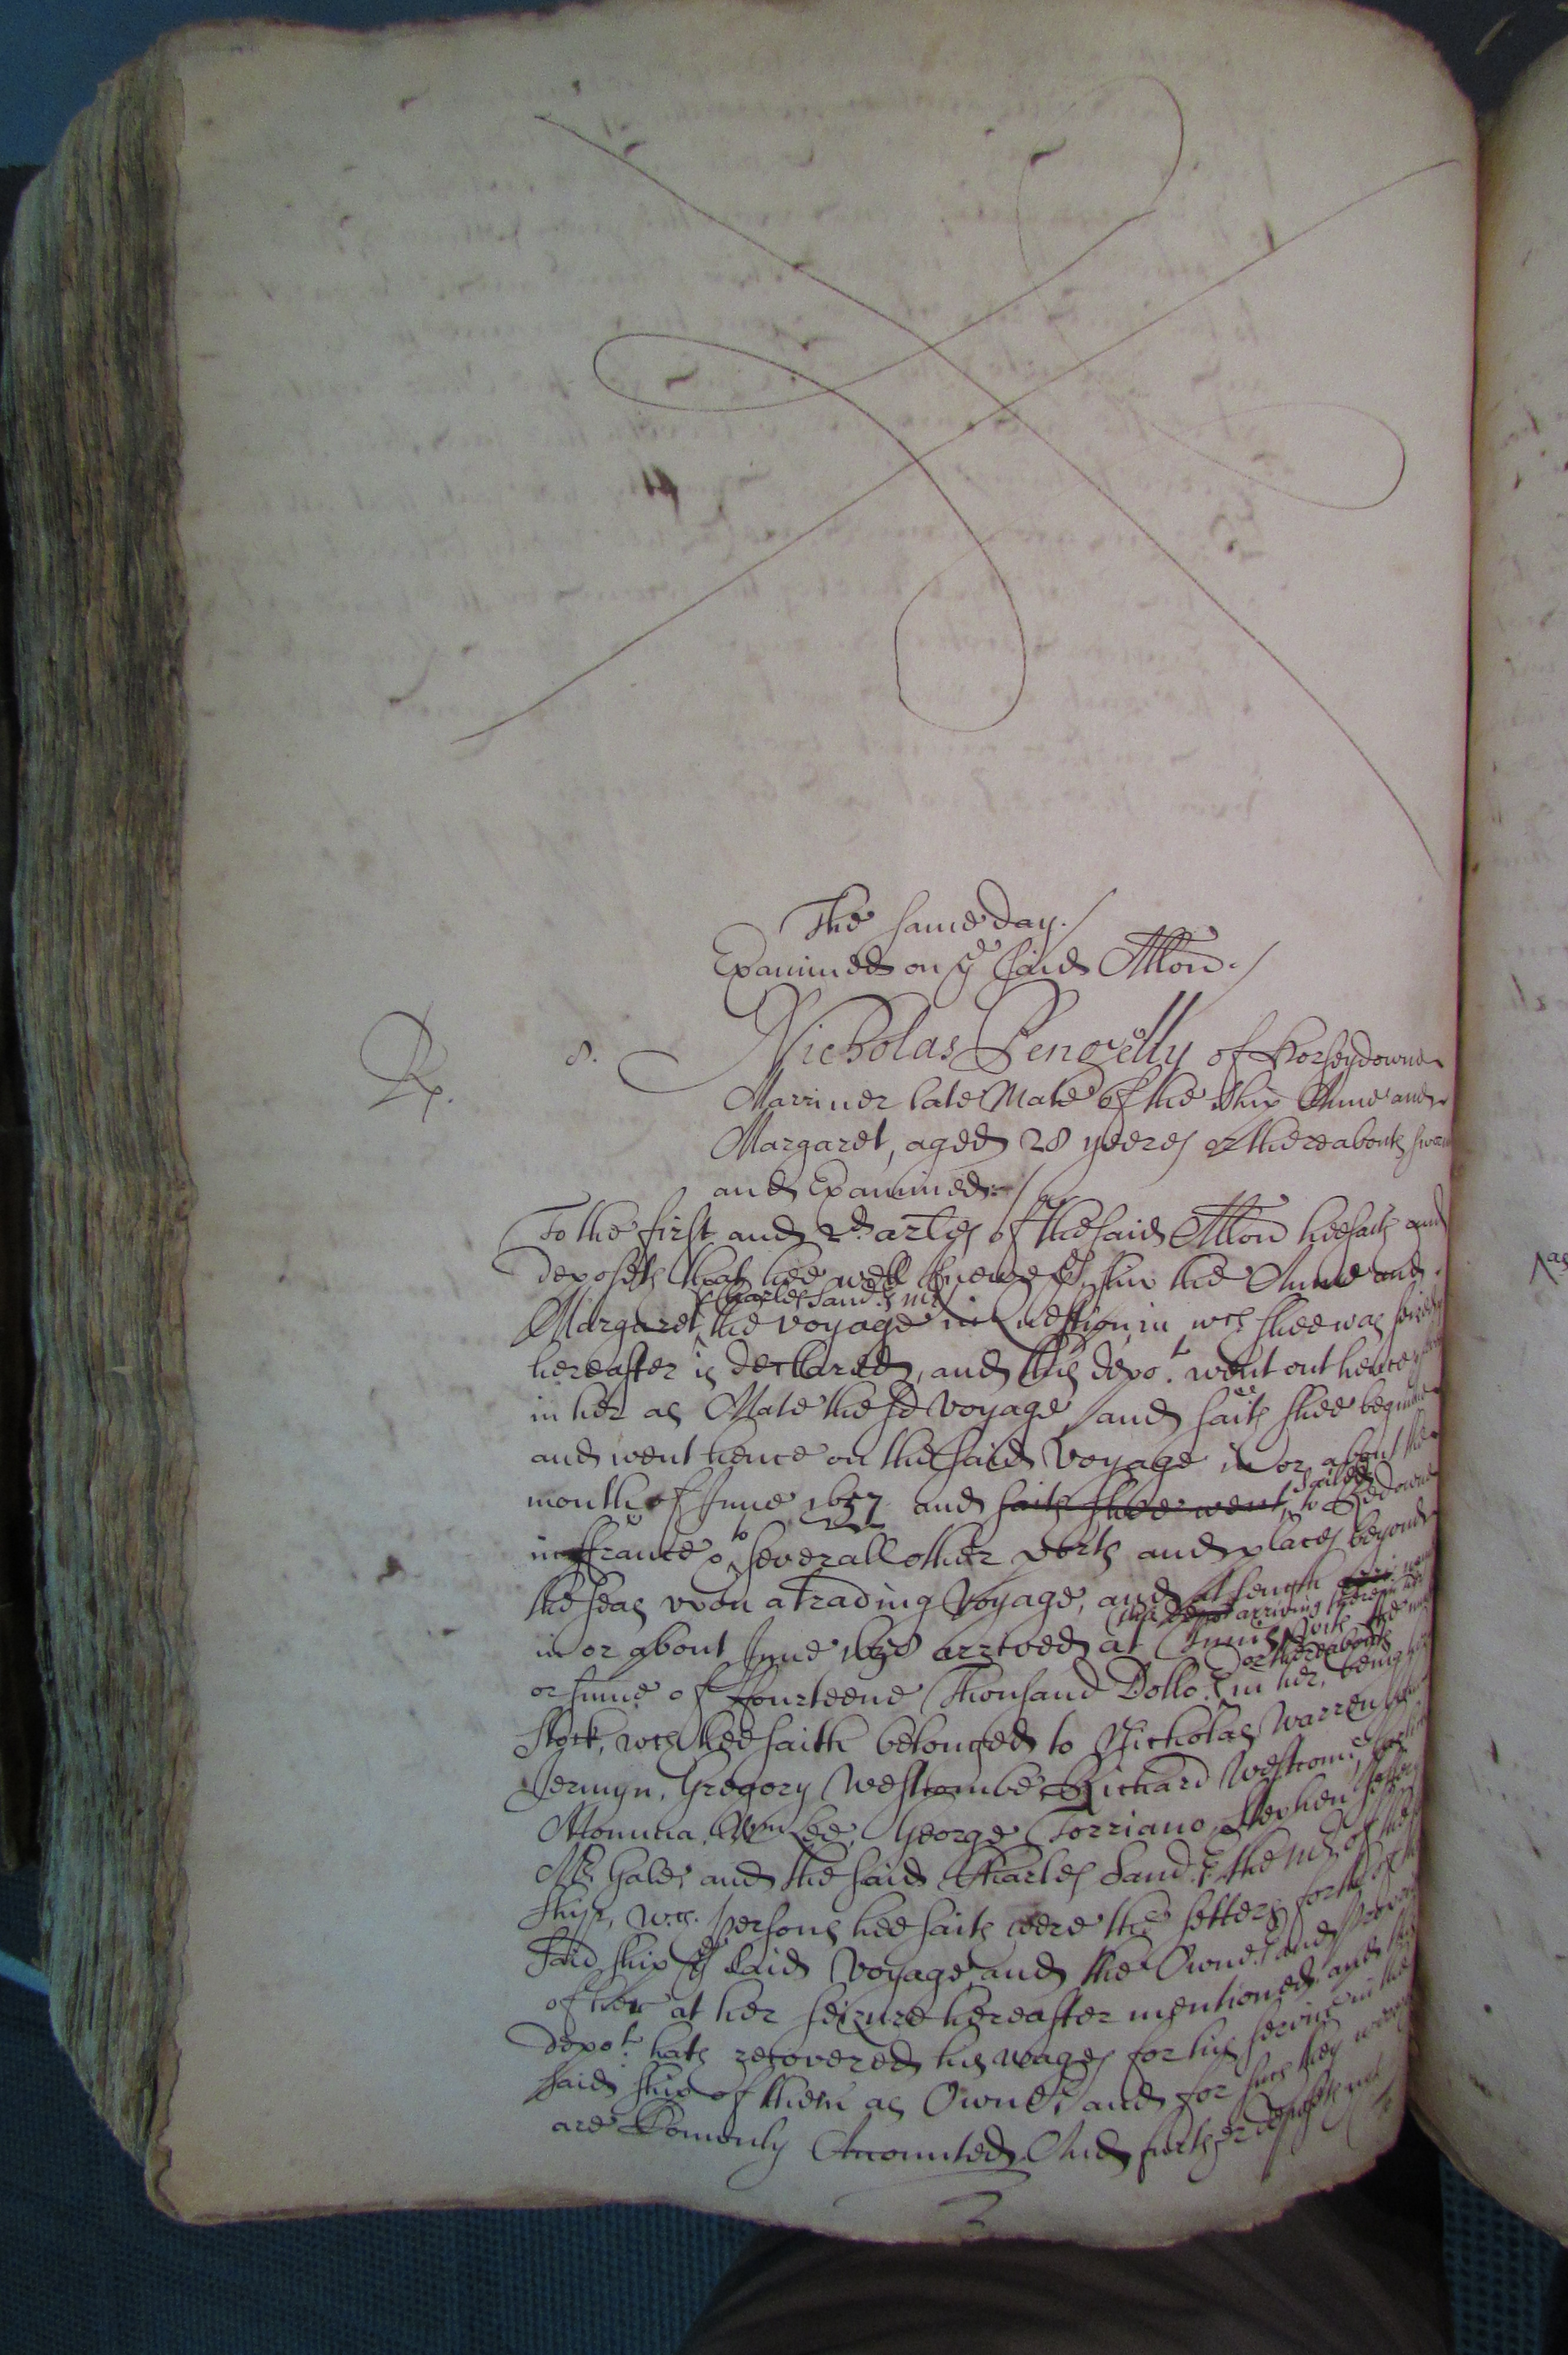 The same day./
Examined on ye said Allon./
Rp. 8. Nicholas Pengelly of Horseydowne
Marriner late Mate of the ship Anne and
Margaret, aged 28 yeeres or thereabouts sworn
and Examined:-/
To the first and 2d. arles of the said Allon hee saith and
deposeth that hee well knewe ye ship the Anne and
Charles Sanders mr
Margaret, the voyage in question, in wch shee was
hereafter is declared, and this depot. went out hence
in her as Mate the sd voyage and saith shee
and went hence on the said Voyage in or about the
month of June 1657 and saith shee went, sailed to
in ffrance & to severall other ports and places beyond
the seas upon a Trading Voyage, and at length
arriving there
in or about June 1658 arrived at with the
or thereabouts
or summe of ffourteene Thousand Dollors in her, being
stock, wch hee saith belonged to Nicholas Warren
Jermyn, Gregory Westcombe, Richard Westcombe,
Wm Lee, George Torriano, Stephen
Mr Gale, and the said Charles Sanders the mr of the
ship, wch. persons hee saith were the setters forth of the
said ship ye said Voyage, and the Owners and
of her at her seizure hereafter mentioned, and
depot. hath recovered his wages for his service in the
said ship of them as Owners and for such they were
are Comonly Accounted. And further deposeth not